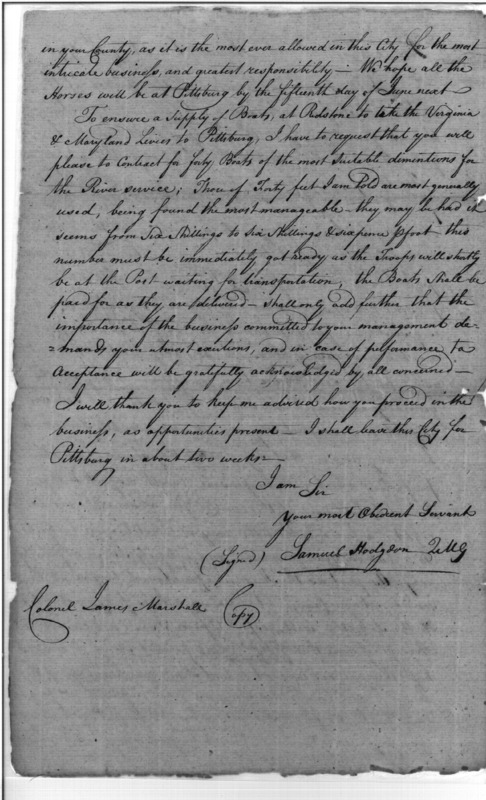 in your County, as it is the most ever allowed in this City for the most
intricate business, and greatest responsibility — We hope all the
Horses will be at Pittsburg by the fifteenth day of June next —
To ensure a Supply of Boats, at Redstone to take the Virginia
& Maryland Levies to Pittsburg, I have to request that you will
please to Contract for forty Boats of the most Suitable dimentions for
the River service; Those of Forty feet I am Told are most generally
used, being found the most manageable — they may be had it
seems from Six Shillings to Six Shillings & sixpence pfoot — this
number must be immediately got ready as the Troops will shortly
be at the Post waiting for transportation, the Boats Shall be
paid for as they are delivered — I shall only add further that the
importance of the business committed to your management de-
=mands your utmost exertions, and in case of performance, to
Acceptance will be gratefully acknowledged by all concerned —
I will thank you to keep me advised how you proceed in the
business, as opportunities present — I shall leave this City for
Pittsburg in about two weeks —
I am Sir
Your most Obedient Servant
(Signed) Samuel Hodgdon QMG
Colonel James Marshall Copy